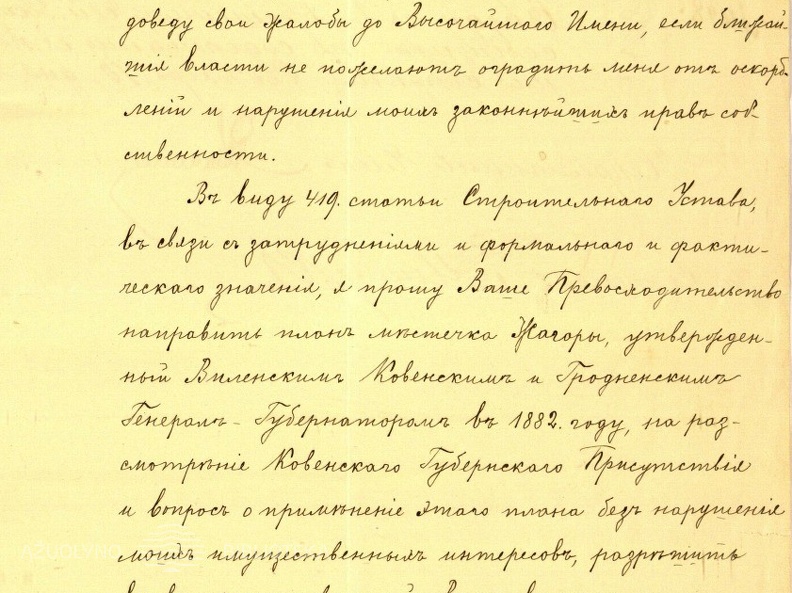 доведу свои жалобы до Высочайшаго Имени, если ближай-
шія власти не пожелаютъ оградить меня отъ оскорб-
леній и нарушенія моихъ законнѣйшихъ правъ соб-
ственности.
Въ виду 419. статьи Строительнаго Устава,
въ связи съ затрудненіями и формальнаго и факти-
ческаго значенія, я прошу Ваше Превосходительство
направить планъ мѣстечка Жагоры, утвержден-
ный Виленскимъ Ковенскимъ и Гродненскимъ
Генералъ-Губернаторомъ въ 1882. году, на раз-
смотрѣніе Ковенскаго Губернскаго Присутствія
и вопросъ о примѣненіе этого плана безъ нарушенія
моихъ имущественныхъ интересовъ, разрѣшить